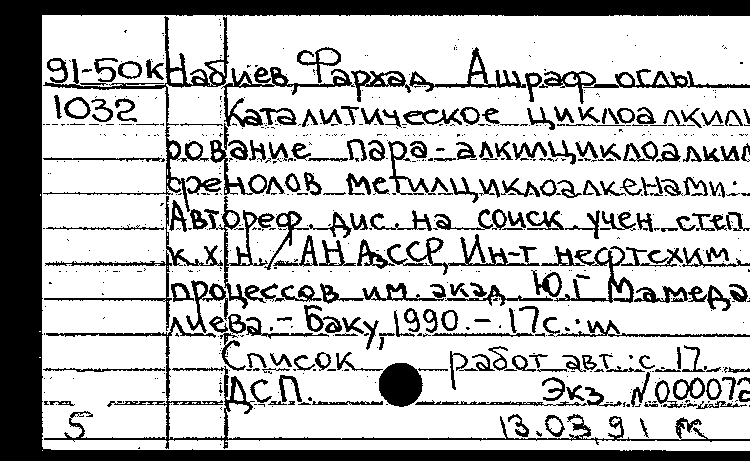 91-50К Набиев, Фархад Ашраф оглы
1032 Каталитическое циклоалкили
рование пара-алкилциклоалкил
фенолов метилциклоалкенами:
Автореф. дис. на соиск. учен степ
к.х.н. / АН АзССР, Ин-т нефтехим.
процессов им. акад. Ю.Г Мамеда
лиева. - Баку, 1990. - 17с.:ил
Список работ авт.: с. 17.
ДСП. Экз N000072
5 13.03.91